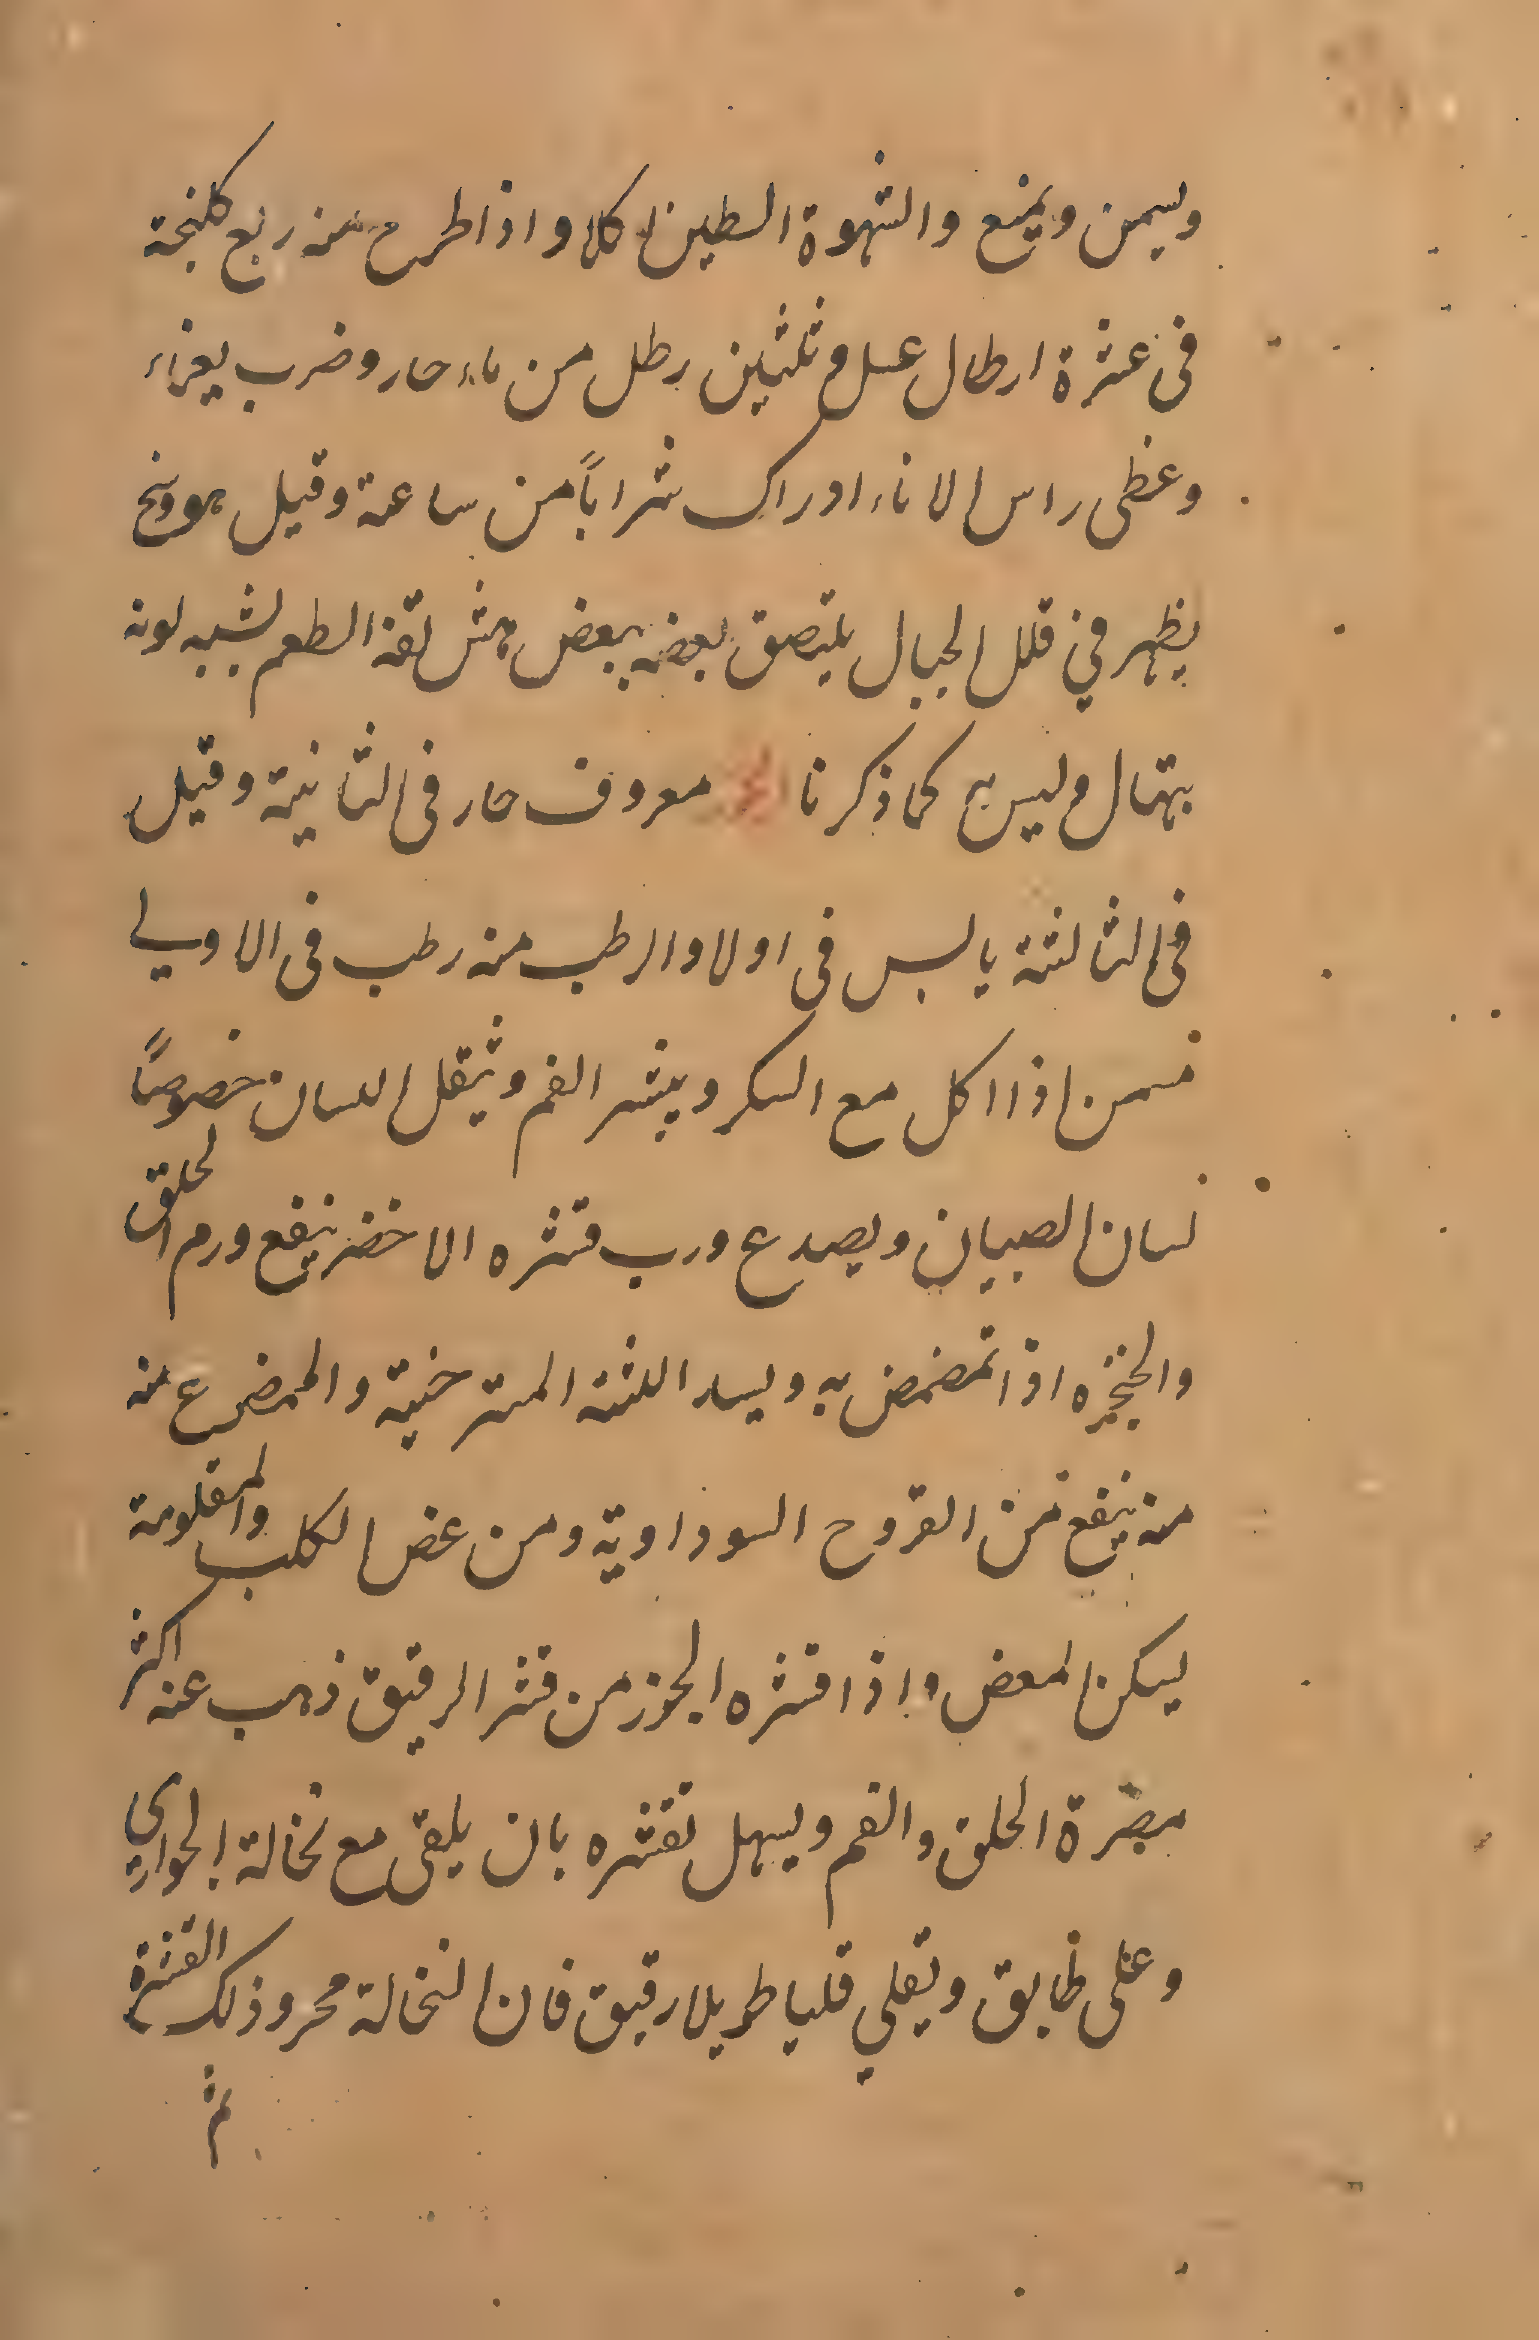 ويسمن ويمنع والشهوة الطين اكلا واذا طرح منه ربع كلنجة
فى عشرة ارطال عسل وثلثين رطل من ماء حار وضرب يعزاء
وغطى راس الاناء ادراك شراباً من ساعة وقيل هو وسخ
يظهر في قلل الجبال يلتصق بعضه ببعض هش تفه الطعم يشبه لونه
بتهال وليس به كما ذكرنا معروف حار فى الثانية وقيل
فى الثالثة يابس فى اولا والرطب منه رطب فى الاولى
مسمن اذا اكل مع السكر ويبثر الفم ويثقل اللسان خصوصاً
لسان الصبيان ويصدع ورب قشره الاخضر ينفع ورم الحلق
والحنجره اذا تمضمض به ويسد اللثة المسترخية والممضوع منه
منه ينفع من القروح السوداوية ومن عض الكلب والمقلومة
ليكن المعض واذا قشره الجوز من قشر الرقيق ذهب عنه اكثر
مضرة الحلق والفم ويسهل تقشره بان يلقى مع نخالة الحوارى
وعلى طابق وتقلي قليا طويلا رقيق فان النخالة محروذلك القشرة
ثم